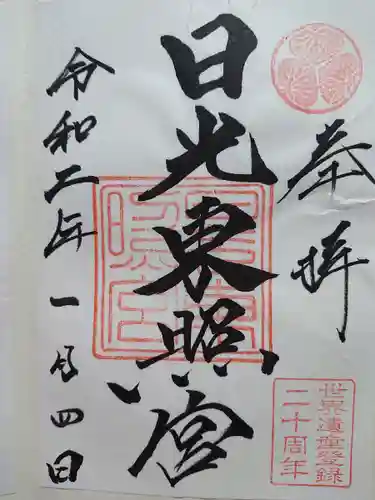 奉拝
世界遺産登録
二十周年
日光東照宮
令和二年一月四日